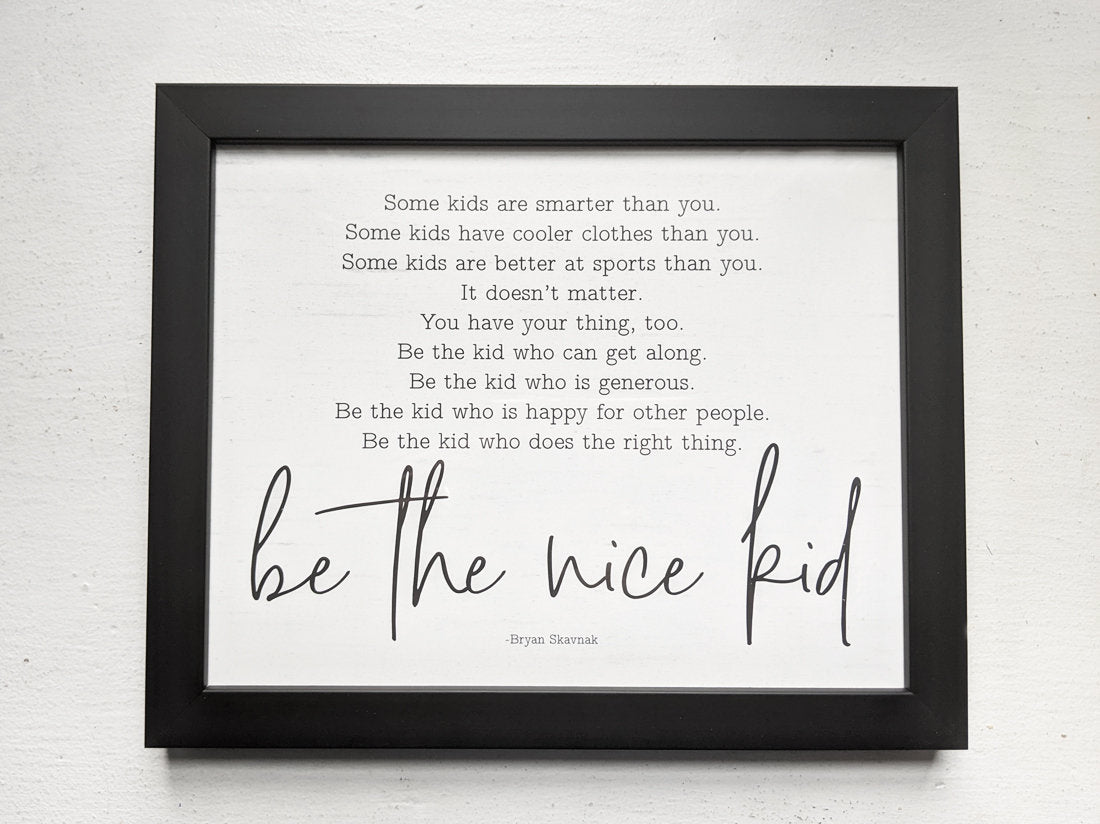 Some kids are smarter than you.
Some kids have cooler clothes than you.
Some kids are better at sports than you.
It doesn't matter.
You have your thing, too.
Be the kid who can get along.
Be the kid who is generous.
Be the kid who is happy for other people.
Be the kid who does the right thing.
be the nice kid
-Bryan Skavnak